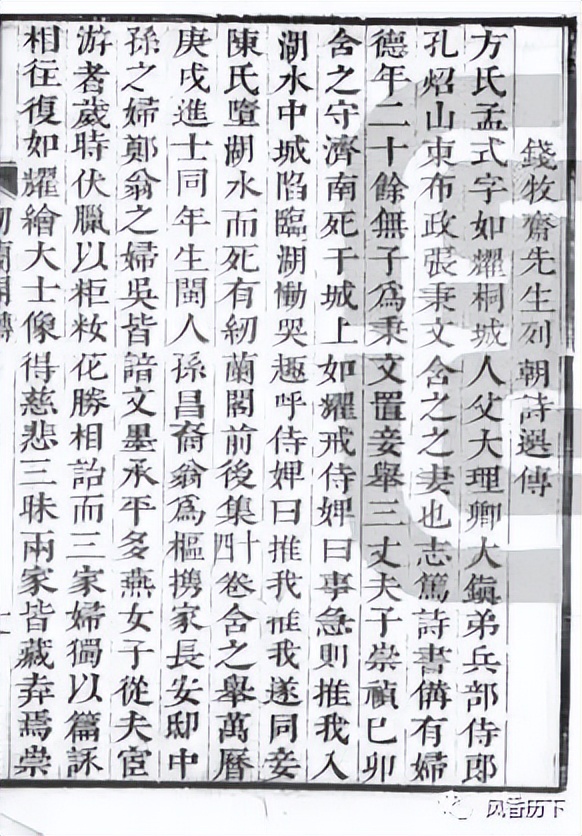 錢牧齋先生列朝詩選傳
方氏孟式字如耀桐城人父大理卿大鎮弟兵部侍郎
孔炤山東布政張秉文含之之妻也志篤詩書備有婦
德年二十餘無子爲秉文置妾舉三丈夫子崇禎己卯
含之守濟南死于城上如耀戒侍婢曰事急則推我入
湖水中城陷臨湖慟哭趣呼侍婢曰推我推我遂同妾
陳氏墮湖水而死有紉蘭閣前後集四十卷含之舉萬曆
庚戌進士同年生閩人孫昌裔翁爲樞擕家長安邸中
孫之婦鄭翁之婦吳皆諳文墨承平多燕女子從夫宦
游者歲時伏臘以粔籹花勝相詒而三家婦獨以篇詠
相往復如耀繪大士像得慈悲三昧兩家皆藏弆焉崇
风香历下